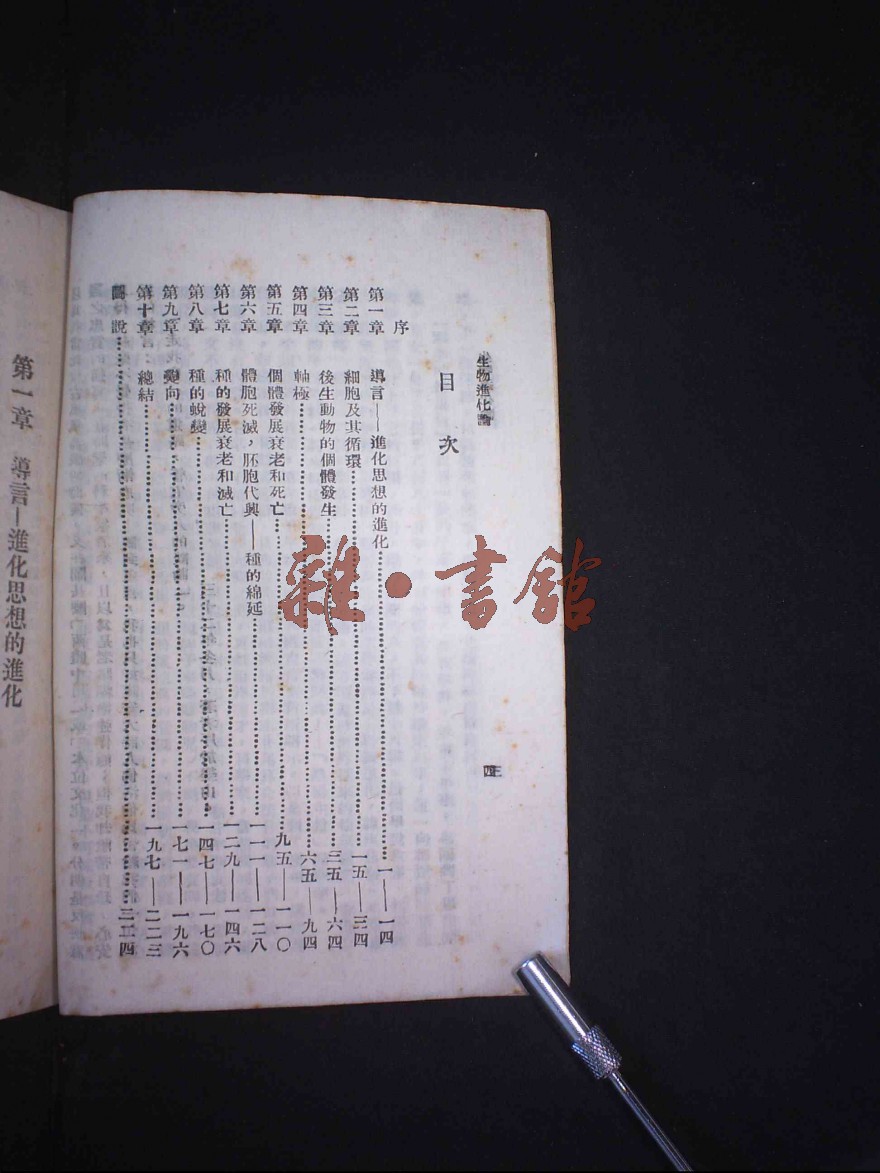 生物進化論
目次
序
第一章 導言——進化思想的進化………一——一四
第二章 細胞及其循環………一五——三四
第三章 後生動物的個體發生………三五——六四
第四章 軸極………六五——九四
第五章 個體發展衰老和死亡………九五——一一〇
第六章 體胞死滅，胚胞代興——種的綿延………一一一——一二八
第七章 種的發展衰老和滅亡………一二九——一四六
第八章 種的蛻變………一四七——一七〇
第九章 變向………一七一——一九六
第十章 總結………一九七——二二三
圖說………二二四
第一章 導言—進化思想的進化
雜·書館